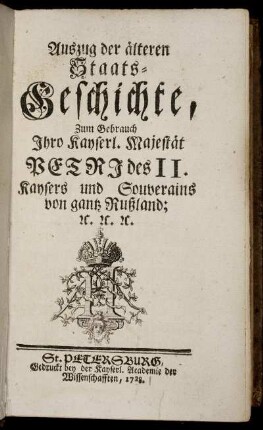 Auszug der älteren
Staats-
Geschichte,
Zum Gebrauch
Ihro Kayserl. Majestät
PETRI des II.
Kaysers und Souverains
von gantz Rußland;
ꝛc. ꝛc. ꝛc.
St. PETERSBURG,
Gedruckt bey der Kayserl. Academie der
Wissenschafften, 1728.